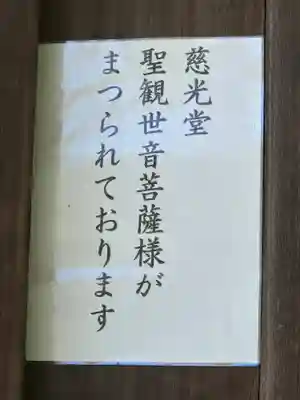 慈光堂
聖観世音菩薩様が
まつられております